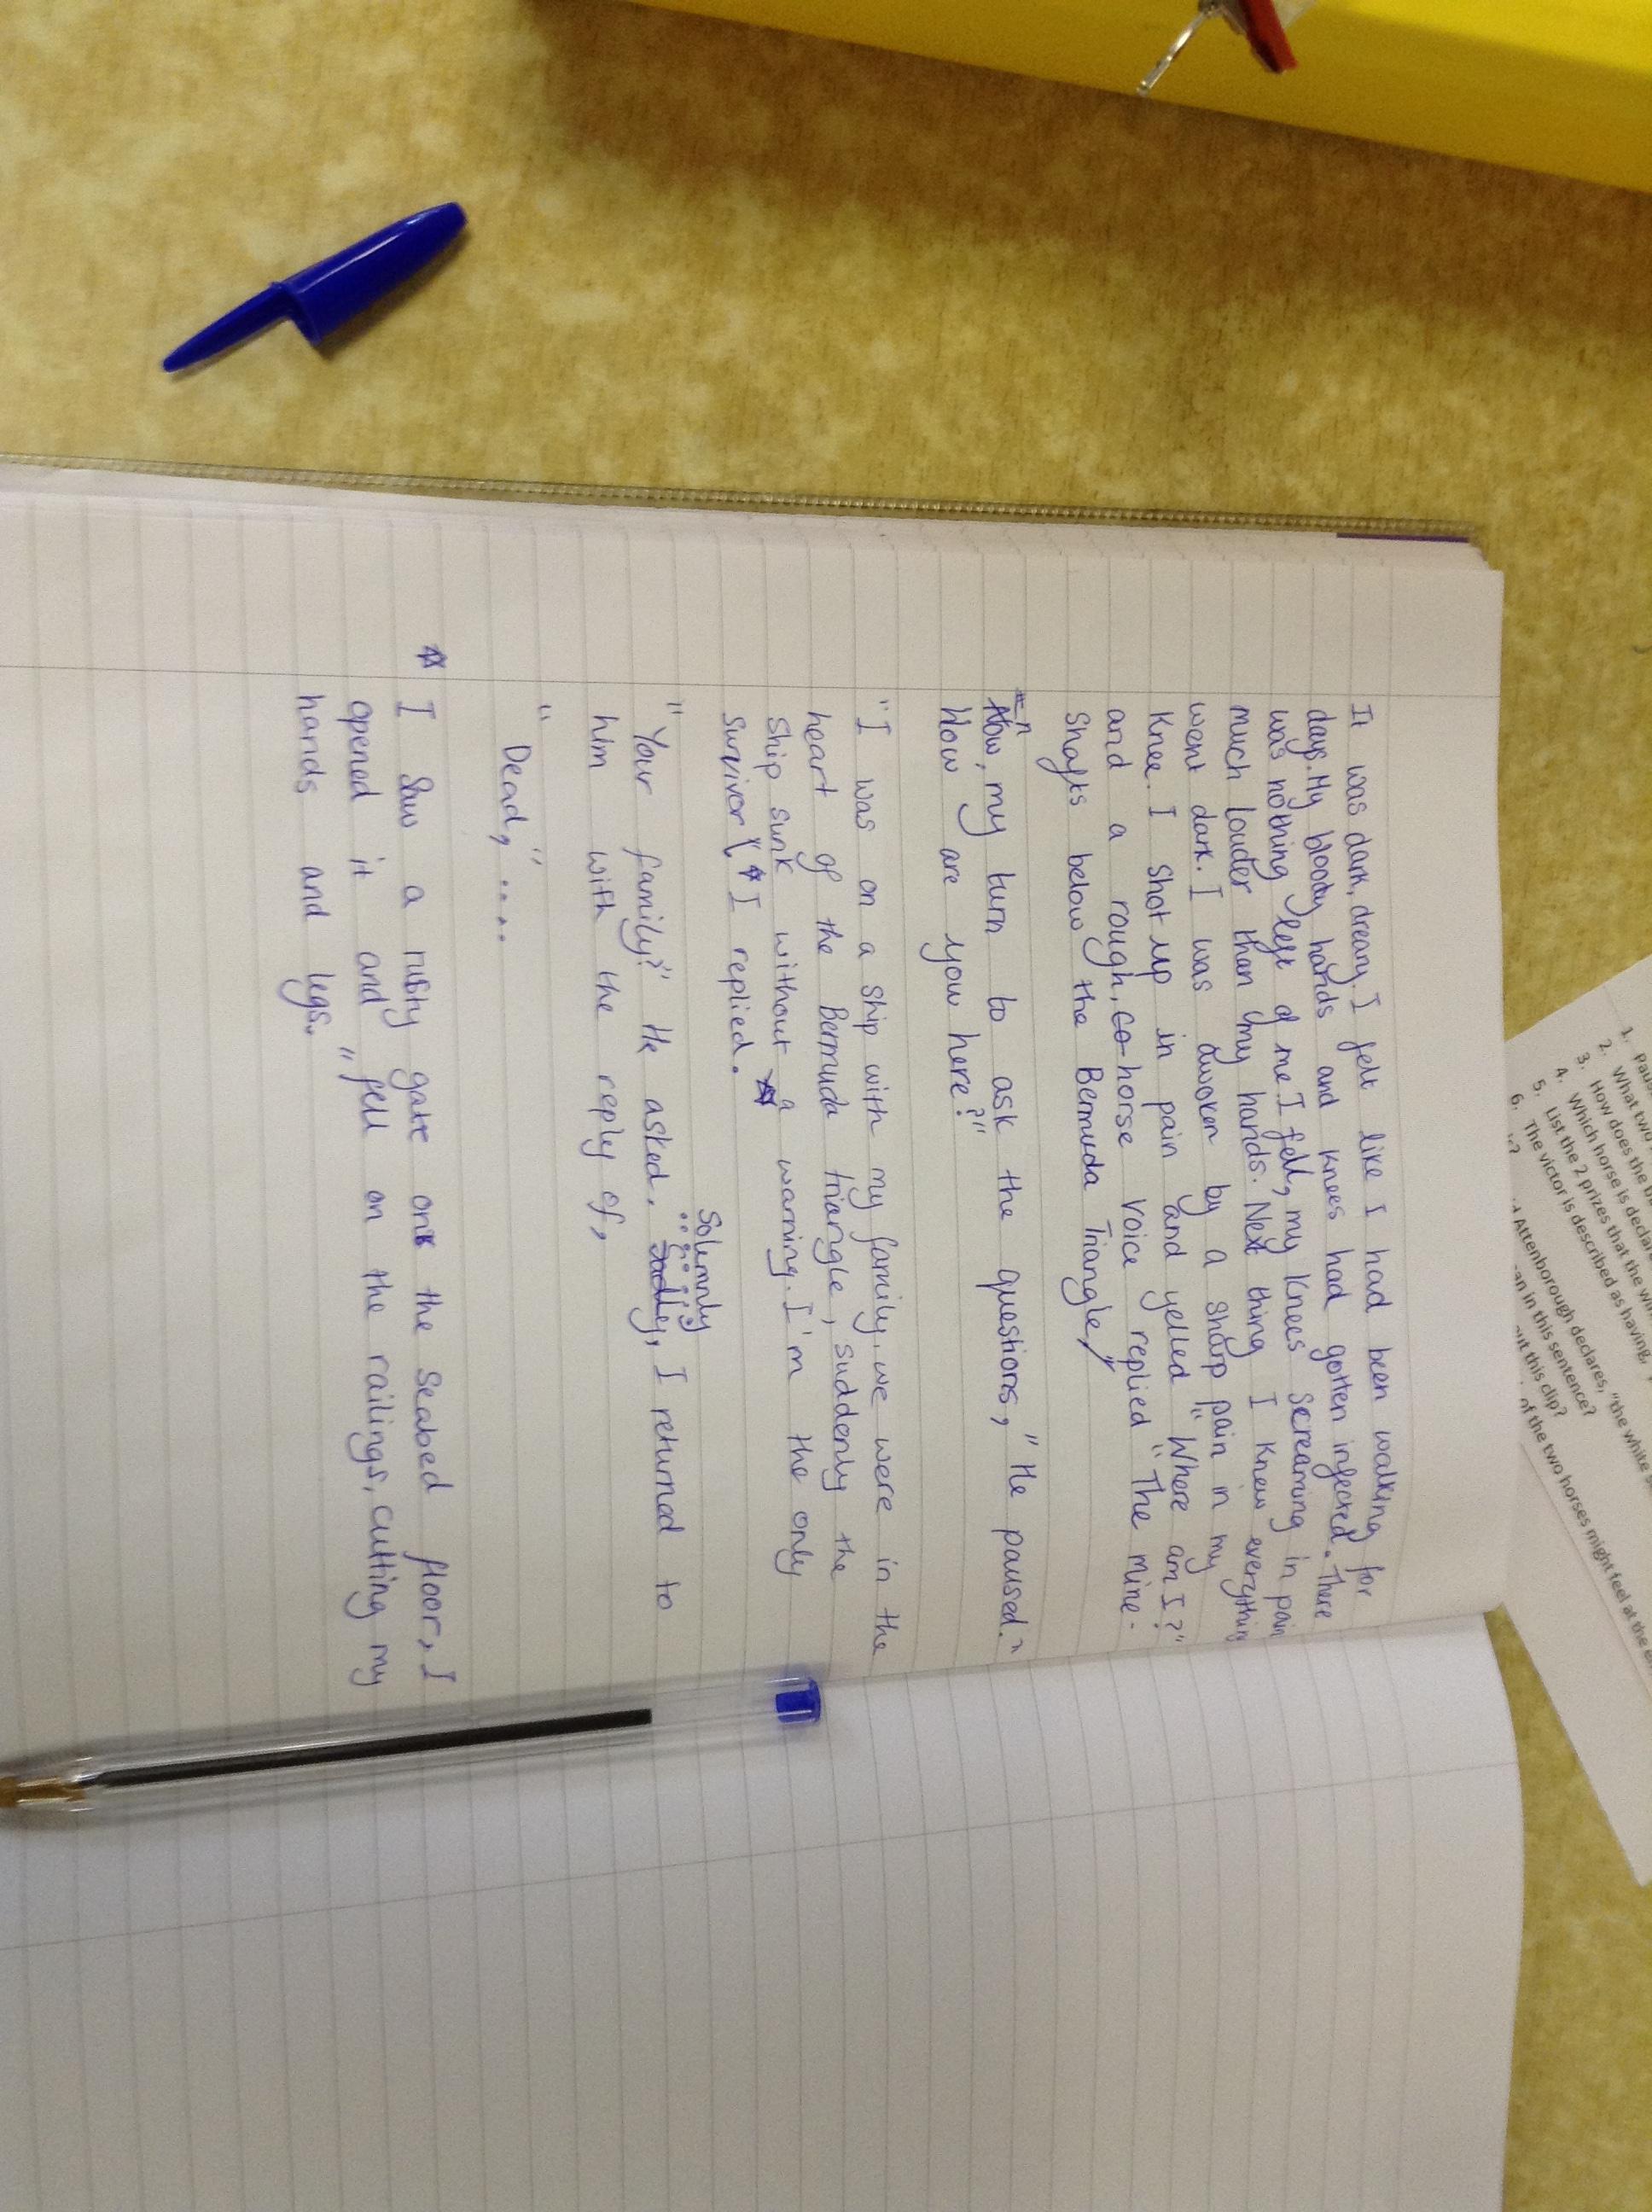 It was dark, dreary. I felt like I had been walking for
days. My bloody hands and knees had gotten infected. There
was nothing left of me. I fell, my knees screaming in pain
much louder than my hands. Next thing I knew everything
went dark. I was awoken by a sharp pain in my
knee. I shot up in pain and yelled "Where am I?"
and a rough, co- horse voice replied "The mine-
shafts below the Bermuda Triangle,"
"now, my turn to ask the questions," He paused."
How are you here?"
"I was on a ship with my family, we were in the
heart of the Bermuda triangle, suddenly the
ship sunk without a warning. I'm the only
survivor" I replied.
Solemnly
"Your family?" He asked, sadly, I returned to
him with the reply of,
"
Dead," ....
I saw a rusty gate on the seabed floor, I
opened it and "fell on the railings, cutting my
hands and legs.
1. Paus
2. What two
3. How does the
4. Which horse is declar
5. List the 2 prizes that the wi
6. The victor is described as having,
Attenborough declares, "the white s
an in this sentence?
out this clip?
of the two horses might feel at the e